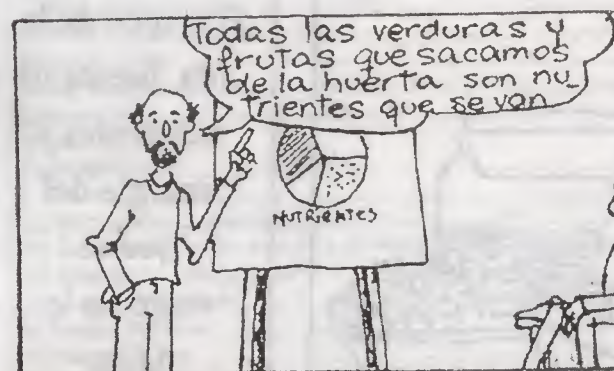 Todas las verduras y
frutas que sacamos
de la huerta son nu_
trientes que se van
NUTRIENTES